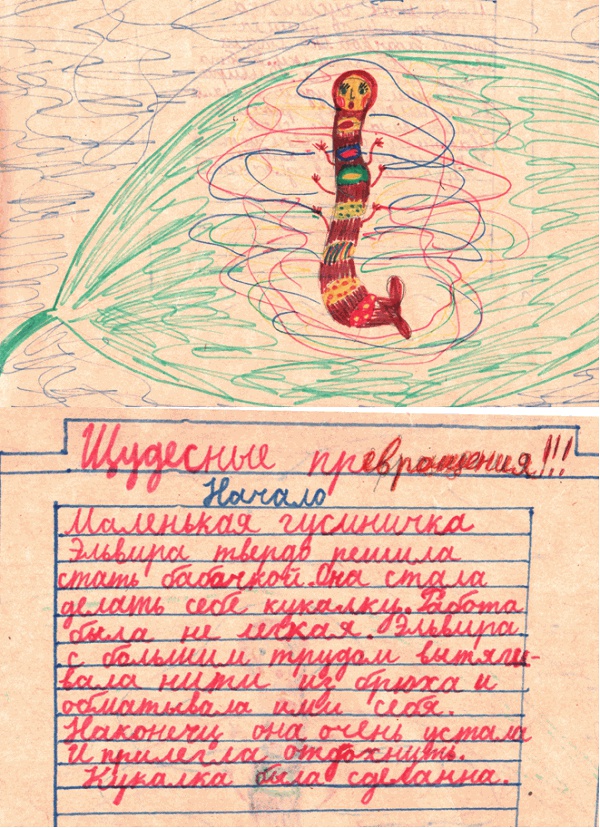 Щудесные превращения!!!
Начало
Маленькая гусиничка
Эльвира твердо решила
стать бабачкой. Она стала
делать себе кукалку. Работа
была не легкая. Эльвира
с большим трудом вытяги-
вала нити из брюха и
обматывала ими себя.
Наконец она очень устала
И прилегла отдохнуть.
Кукалка была сделанна.